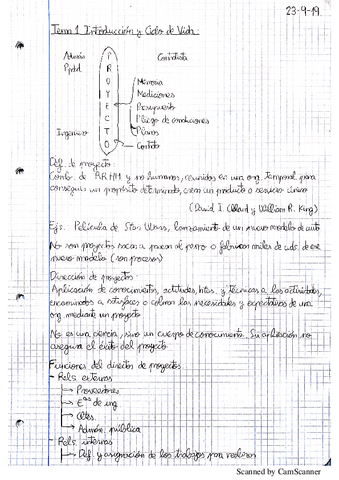 23-9-19
Tema 1 Introducción y Ciclo de Vida
Admón PROYECTO Contratista
Ppdd.
Memoria
Mediciones
Presupuesto
Pliego de condiciones
Ingeniero Planos
Contrato
Def. de proyecto:
Comb. de RRHH y no humanos, reunidos en una org. temporal para
conseguir un propósito determinado, crear un producto o servicio único
(David I. Cleland y William R. King)
Ejs. Película de Star Wars, lanzamiento de un nuevo modelo de auto
No son proyectos sacar a pasear al perro o fabricar miles de uds. de ese
nuevo modelo (son procesos)
Dirección de proyectos
Aplicación de conocimientos, actitudes, htas. y técnicas a las actividades,
encaminados a satisfacer o colmar las necesidades y expectativas de una
org. mediante un proyecto
No es una ciencia, sino un cuerpo de conocimiento. Su aplicación no
asegura el éxito del proyecto
Funciones del director de proyectos:
- Rels. externas
Proveedores
Eªˢ de ing
Admón. pública
- Rels. internas
Def. y asignación de los trabajos para realizar
Scanned by CamScanner